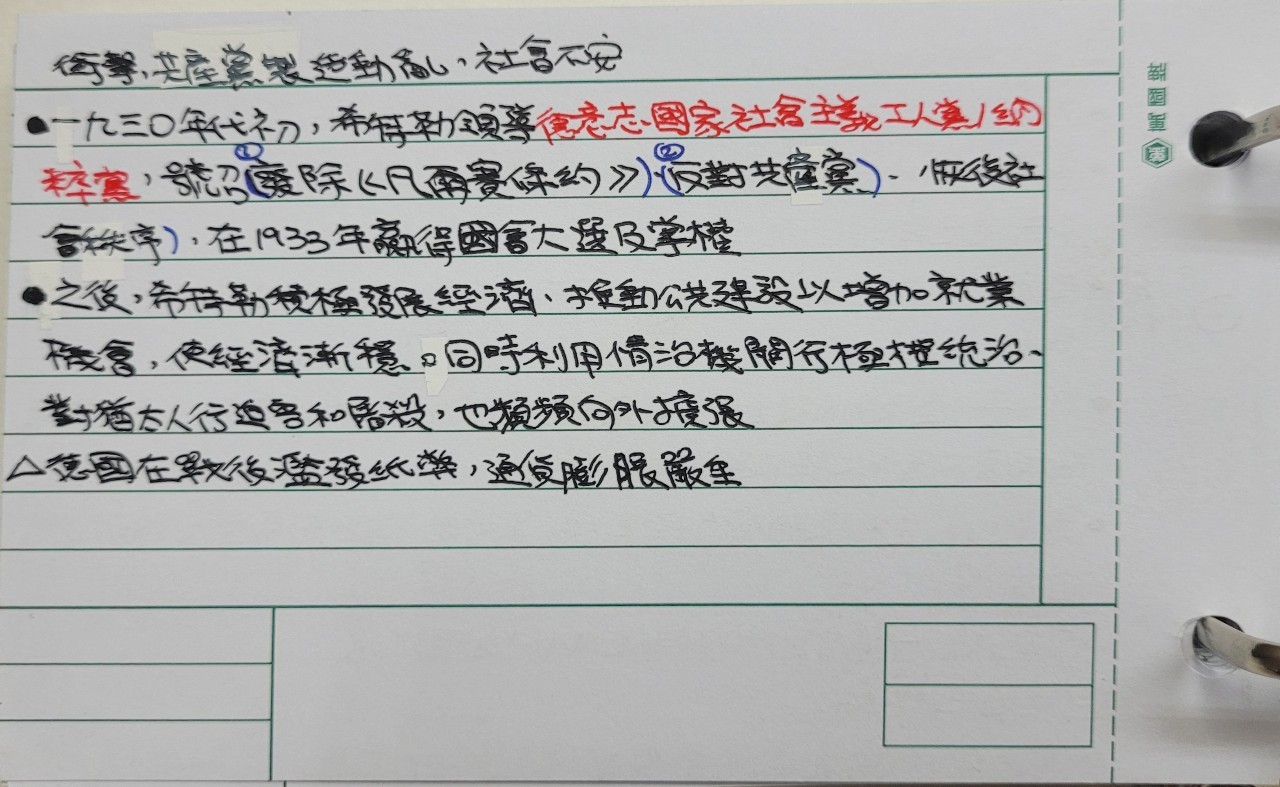 衝擊,共產黨製造動亂,社會不安
●一九三〇年代初,希特勒領導德意志國家社會主義工人黨/納
粹黨,號召①(廢除《凡爾賽條約》)、②(反對共產黨)、恢復社
會秩序),在1933年贏得國會大選及掌權
●之後,希特勒積極發展經濟、推動公共建設以增加就業
機會,使經濟漸穩。同時利用情治機關行極權統治、
對猶太人行迫害和屠殺,也頻頻向外擴張
△德國在戰後濫發紙幣,通貨膨脹嚴重
萬國牌